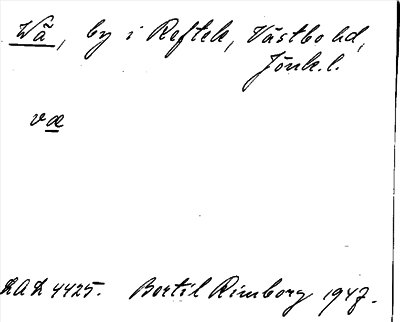 Wä, by i Reftele, Västbo hd,
Jönk.l.
væ
LAL 4425. Bertil Rimborg 1947.